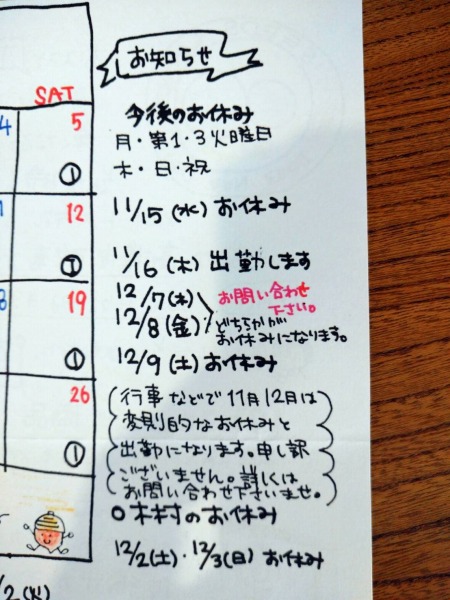 お知らせ
今後のお休み
月・第1・3火曜日
木・日・祝
11/15(水)お休み
11/16(木)出勤します
12/7(木)
12/8(金)
お問い合わせ
下さい。
どちらかが
お休みになります。
12/9(土)お休み
(行事などで11月12月は
変則的なお休みと
出勤になります。申し訳
ございません。詳しくは
お問い合わせ下さいませ。)
○木村のお休み
12/2(土)・12/3(日)お休み
SAT
4
5
①
12
①
19
①
26
①
/2(火)